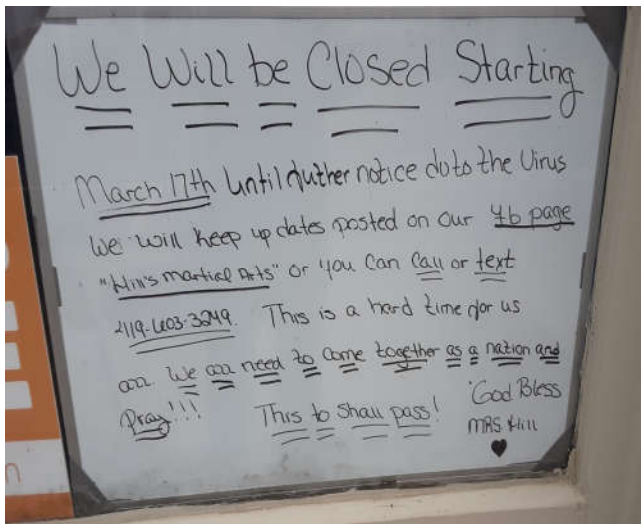 We Will be Closed Starting
March 17th Until further notice do to the Virus
We will keep up dates posted on our fb page
"Hill's Martial Arts" or you can Call or text
419-603-3249. This is a hard time for us
all. We all need to Come together as a nation and
Pray!!! This to Shall pass! God Bless
MRS Hill
n